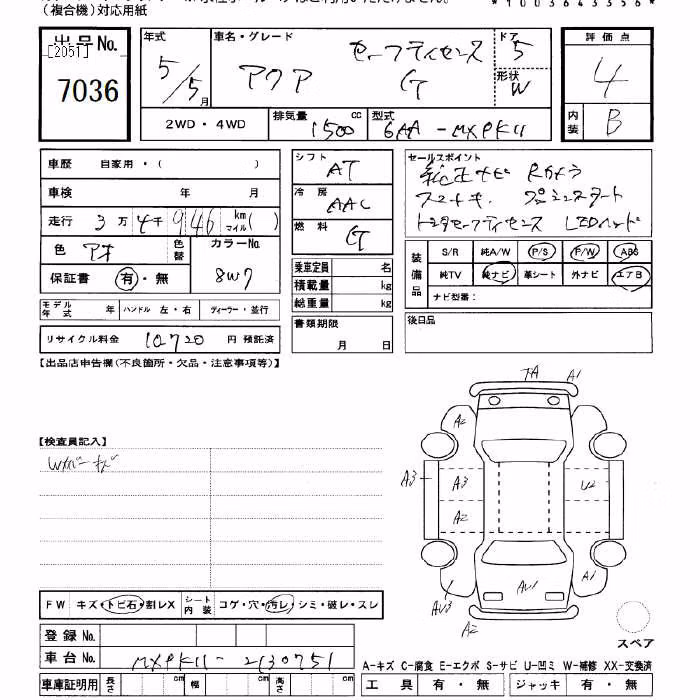 (複合機)対応用紙
*1003643356*
出品No.
[2051]
7036
年式
5/5月
車名・グレード
アクア G
セーフティセンス
ドア 5
形状 W
評価点
4
内装 B
2WD・4WD
排気量 1500 cc
型式 6AA-MXPK11
車歴 自家用・( )
車検 年 月
走行 3万4千946 km マイル( )
色 アオ
色替
カラーNo. 8W7
保証書 有・無
モデル年式 年 ハンドル 左・右 ディーラー・並行
リサイクル料金 10720 円 預託済
シフト AT
冷房 AAC
燃料 G
乗車定員 名
積載量 kg
総重量 kg
書類期限
月 日
セールスポイント
純正ナビ Rカメラ
スマートキー プッシュスタート
トヨタセーフティセンス LEDヘッド
装備品
S/R 純A/W P/S P/W ABS
純TV 純ナビ 革シート 外ナビ エアB
ナビ型番:
後日品
【出品店申告欄(不良箇所・欠品・注意事項等)】
【検査員記入】
Wカバーキズ
A1
A2
A3
A3
A2
U2
A1
AU1
AU3
A2
スペア
FW キズ・トビ石・割レX
シート内装 コゲ・穴・汚レ・シミ・破レ・スレ
登録No.
車台No. MXPK11-2130751
車庫証明用 長さ cm 幅 cm 高さ cm
A-キズ C-腐食 E-エクボ S-サビ U-凹ミ W-補修 XX-交換済
工具 有・無 ジャッキ 有・無